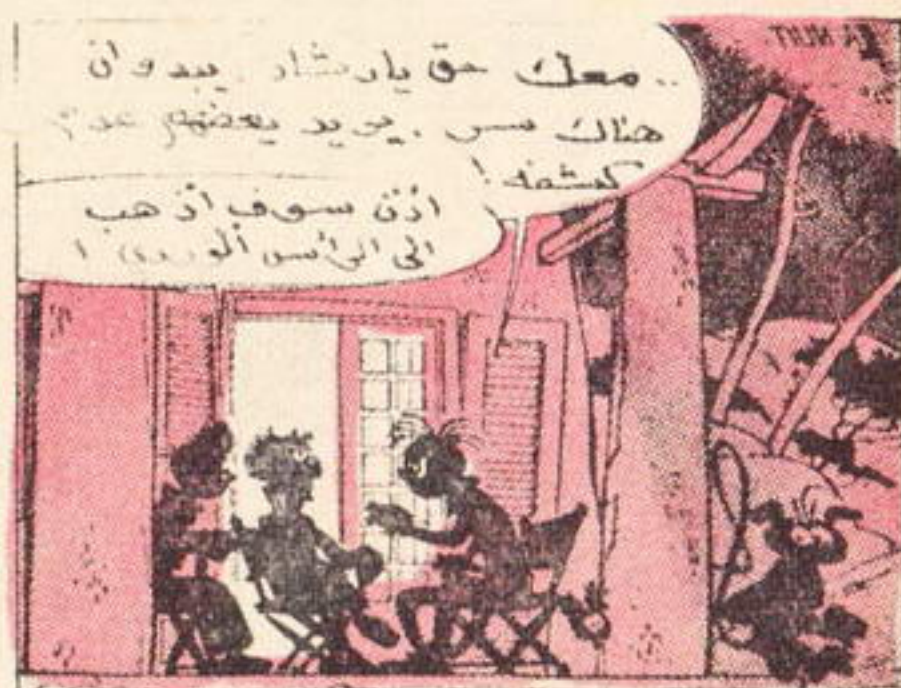 .. معك حق يا رشاد . يبدو ان
هناك سر . يريد بعضهم عدم
كشفه !
اذن سوف أذهب
الى الرأس
LA NUIT